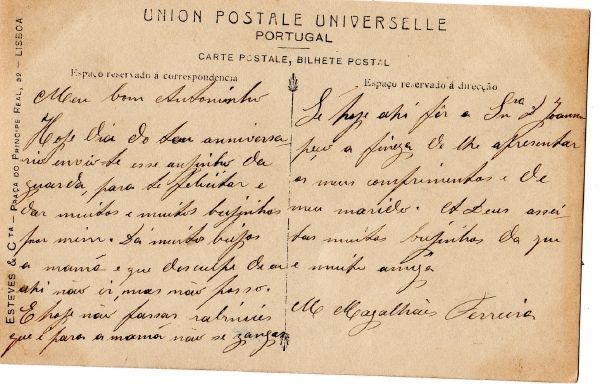 UNION POSTALE UNIVERSELLE
PORTUGAL
CARTE POSTALE, BILHETE POSTAL
Espaço reservado á correspondencia
Meu bom Antoninho
Hoje dia do teu anniversa
rio envio-te esse anjinho da
guarda, para te felicitar e
dar muitos e muitos beijinhos
por mim. Dá muitos beijos
a mamã e que desculpe de eu
ahi não ir, mas não posso.
E hoje não faças rabinices
que é para a mamã não se zangar
Espaço reservado á direcção
Se hoje ahi fôr a Snra D. Joanna
peço a fineza de lhe apresentar
os meus comprimentos e de
meu marido. Adeus acei
tas muitos beijinhos da que
é muito amiga
M Magalhães Ferreira
ESTEVES & CTA - PRAÇA DO PRINCIPE REAL, 32 - LISBOA